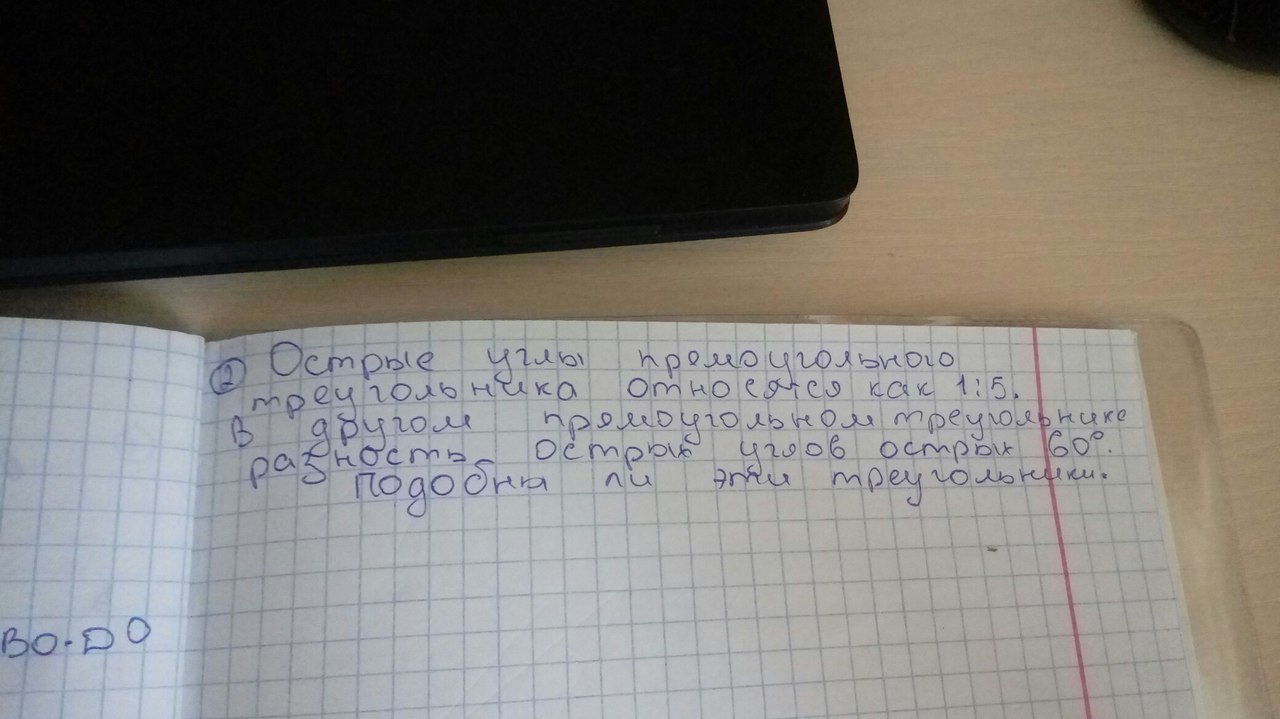 ② Острые углы прямоугольного
треугольника относятся как 1:5.
В другом прямоугольном треугольнике
разность острых углов острых 60°.
Подобны ли эти треугольники.
BO·DO